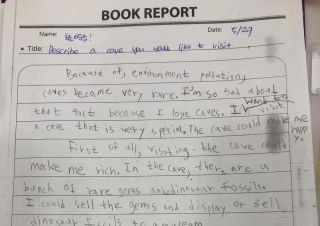 BOOK REPORT
Name:
Date: 5/29
• Title: Describe a cave you would like to visit.
Because of, environment pollution,
caves became very rare. I'm so sad about
that fact because I love caves. I want to visit
a cave that is very special. The cave could make me happy.
First of all, visiting the cave could
make me rich. In the cave, there are a
bunch of rare gems and dinosaur fossils.
I could sell the gems and display or sell
dinosaur fossils to a museum